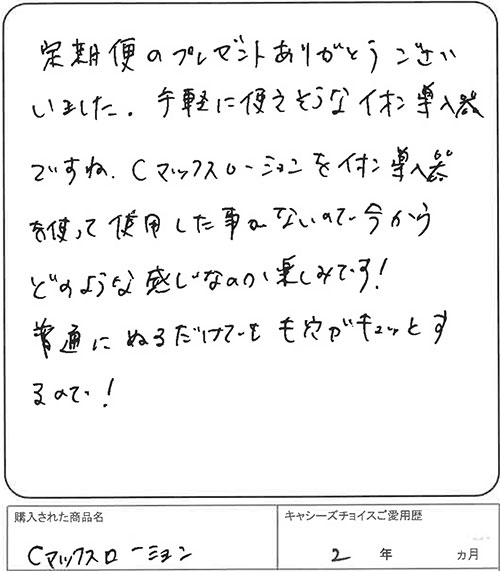 定期便のプレゼントありがとうござい
いました。手軽に使えそうなイオン導入器
ですね。Cマックスローションをイオン導入器
を使って使用した事がないので今から
どのような感じなのか楽しみです!
普通にぬるだけでも毛穴がキュッとす
るので!
購入された商品名
キャシーズチョイスご愛用歴
Cマックスローション
2 年 カ月